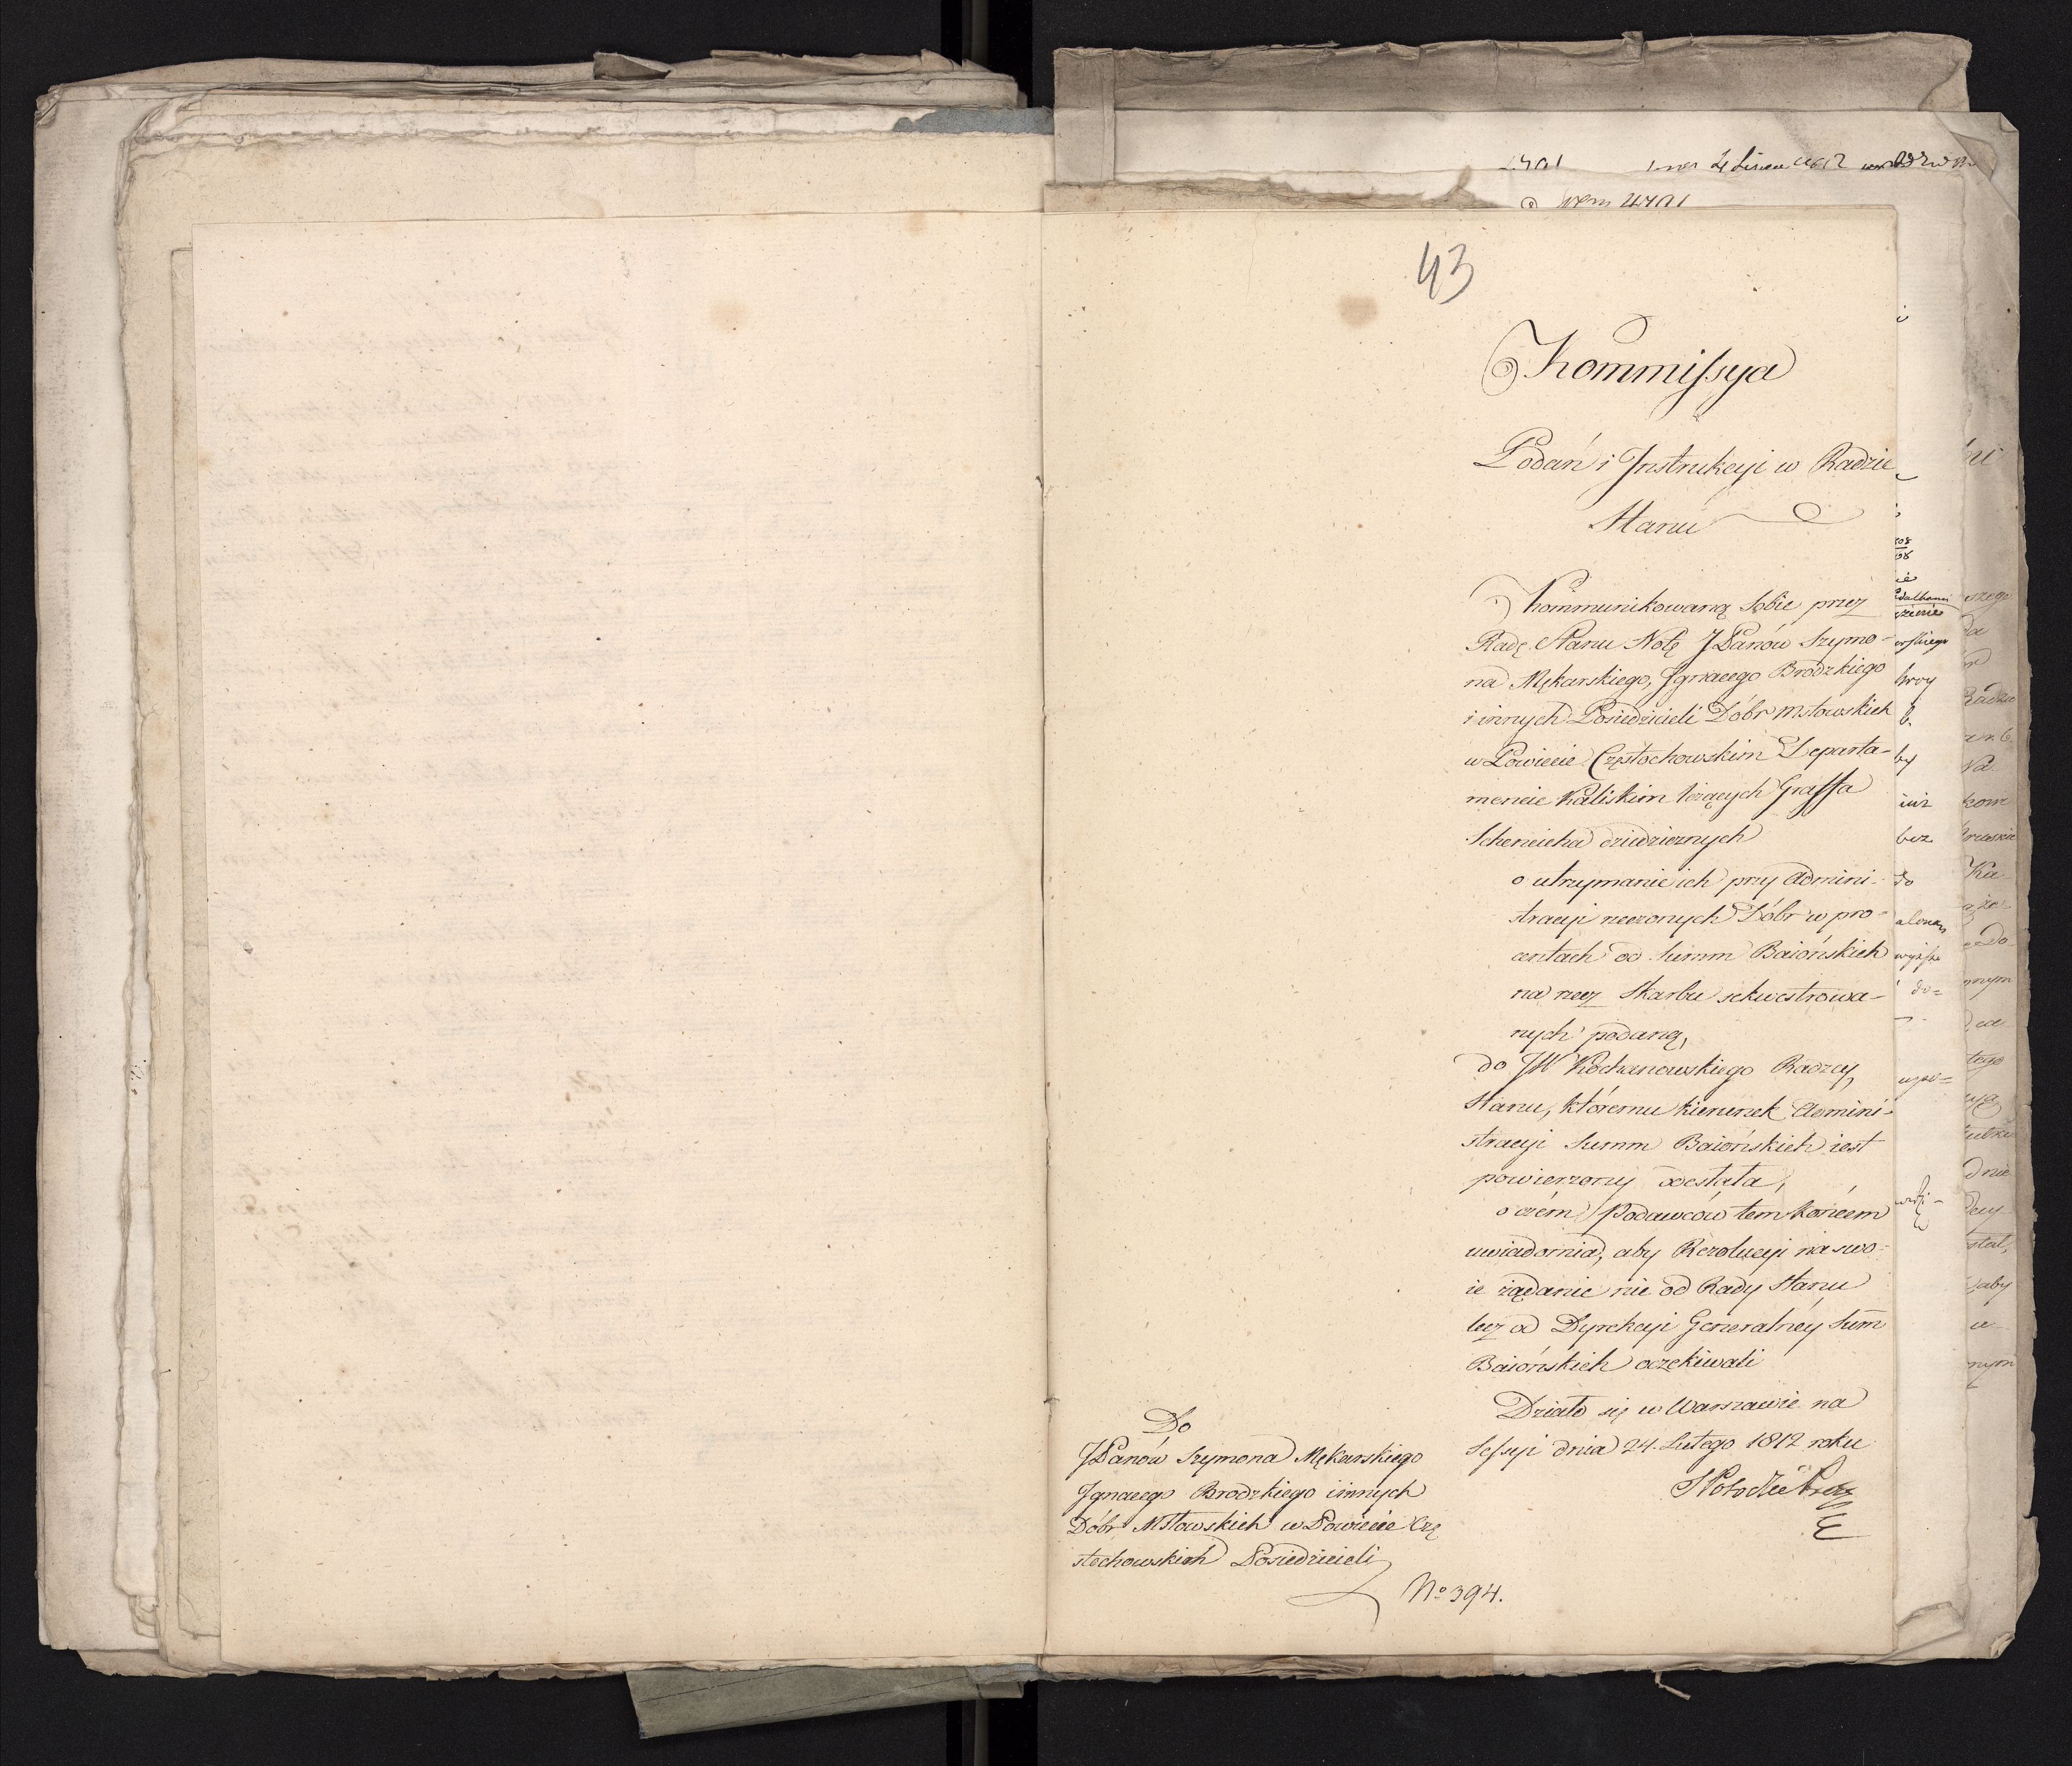 43
Kommissya
Podań i Instrukcyi w Radzie
Stanu
Kommunikowaną sobie przez
Radę Stanu Notę JPanów Szymo-
na Mękarskiego, Ignacego Brodzkiego
i innych Posiedzicieli Dóbr Mstowskich
w Powiecie Częstochowskim Departa-
mencie Kaliskim leżących Graffa
dziedzicznych
o utrzymanie ich przy Admini-
stracyi rzeczonych Dóbr w pro-
centach od Summ Baiońskich
na rzecz Skarbu sekwestrowa-
nych podaną,
do JW Kochanowskiego Radzcy
Stanu, któremu kierunek Admini-
stracyi Summ Baiońskich iest
powierzony odesłała,
o czém Podawców tem końcem
uwiadomia, aby Rezolucyi na swo-
ie żądanie nie od Rady Stanu
lecz od Dyrekcyi Generalnéy Sum̅
Baiońskich oczekiwali
Działo się w Warszawie na
Sessyi dnia 24. Lutego 1812 roku
Do
JPanów Szymona Mękarskiego
Ignacego Brodzkiego i innych
Dóbr Mstowskich w Powiecie Czę
stochowskich Posiedzicieli
No 394.